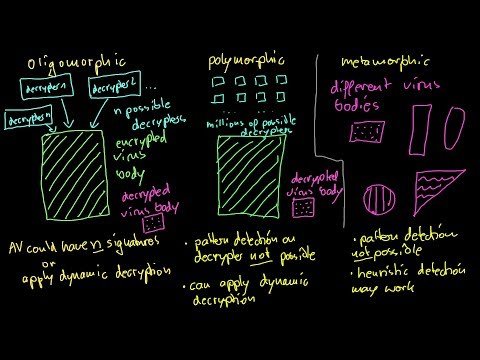 oligomorphic
decrypter 1
decrypter 2
...
decrypter n
n possible
decrypters
encrypted
virus
body
decrypted
virus body
AV could have n signatures
or
apply dynamic decryption
polymorphic
...
millions of possible
decrypters
decrypted
virus body
• pattern detection on
decrypter not possible
• can apply dynamic
decryption
metamorphic
different virus
bodies
• pattern detection
not possible
• heuristic detection
may work